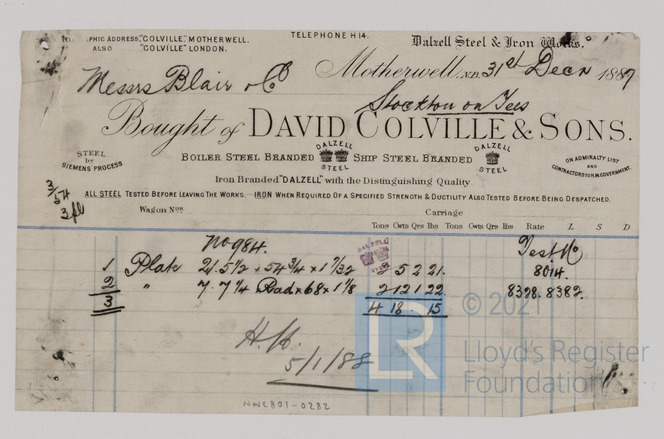 PHIC ADDRESS, "COLVILLE", MOTHERWELL.
ALSO "COLVILLE" LONDON.
TELEPHONE H14.
Dalzell Steel & Iron Works.
Motherwell, N.B. 31st Decr 1887
Messrs Blair & Co
Stockton on Tees
Bought of DAVID COLVILLE & SONS.
STEEL by SIEMENS PROCESS
BOILER STEEL BRANDED DALZELL STEEL SHIP STEEL BRANDED DALZELL STEEL
ON ADMIRALTY LIST AND CONTRACTORS TO H.M. GOVERNMENT.
Iron Branded "DALZELL" with the Distinguishing Quality.
3/54
3 pl
ALL STEEL TESTED BEFORE LEAVING THE WORKS.—IRON WHEN REQUIRED OF A SPECIFIED STRENGTH & DUCTILITY ALSO TESTED BEFORE BEING DESPATCHED.
Wagon Nos. Carriage
Tons Cwts Qrs lbs Tons Cwts Qrs lbs Rate L S D
No 984. DALZELL STEEL Test No
1 Plate 21.5 1/2 + 54 3/4 x 1 7/32 5 2 21. 8014.
2 " 7.7 1/4 Rad x 68 x 1 1/8 2 12 1 22 8398. 8382.
3 4 18 - 15
H.H.
5/1/88
© 2021
LR
Lloyd's Register
Foundation
NWE801-0282